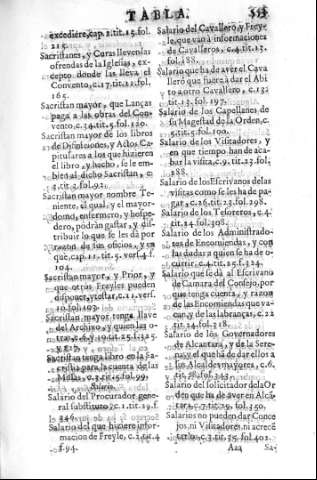 TABLA.
excediere, cap. 2. tit. 15. fol.
215.
Sacristanes, y Curas lleven las
ofrendas de la Iglesias, ex-
cepto donde las lleva el
Convento, c. 17. tit. 12. fol.
165.
Sacristan mayor, que Lanças
paga a las obras del Con-
vento, c. 34. tit. 5. fol. 120.
Sacristan mayor de los libros
de Difiniciones, y Actos Ca-
pitulares a los que hizieren
el libro, y hecho, se le em-
bien al dicho Sacristan, c.
3. tit. 3. fol. 92.
Sacristan mayor nombre Te-
niente, el qual, y el mayor-
domo, enfermero, y hospe-
dero, podràn gastar, y dis-
tribuir lo que se les dà por
razon de sus oficios, y en
què, cap. 11. tit. 5. vers. 4. f.
104.
Sacristan mayor, y Prior, y
que otros Freyles pueden
disponer, y testar, c. 11. vers.
10. fol. 103.
Sacristan mayor tenga llave
del Archivo, y quien las o-
tras, c. 6. y 10. tit. 25. f. 325.
Sacristan tenga libro en la Sa-
cristia para la cuenta de las
Missas, c. 3. tit. 5. fol. 99.
Salario.
Salario del Procurador gene-
ral substituto, c. 1. tit. 19. f.
246.
Salario del que hiziere infor-
macion de Freyle, c. 2. tit. 4
f. 94.
Salario del Cavallero, y Frey-
le, que van à informaciones
de Cavalleros, c. 4. tit. 13.
fol. 188.
Salario que ha de aver el Cava
llero que fuere à dar el Abi
to a otro Cavallero, c. 13.
tit. 13. fol. 197.
Salario de los Capellanes de
su Magestad de la Orden, c.
5. tit. 5. fol. 100.
Salario de los Visitadores, y
en que tiempo han de aca-
bar la visita, c. 9. tit. 23. fol.
288.
Salario de los Escrivanos de las
visitas como se les ha de pa-
gar, c. 26. tit. 23. fol. 298.
Salario de los Tesoreros, c. 4.
tit. 24. fol. 308.
Salario de los Administrado-
res de Encomiendas, y con
las dudas à quien se ha de o-
currir, c. 4. tit. 25. f. 324.
Salario que se dà al Escrivano
de Camara del Consejo, por
que tenga cuenta, y razon
de las Encomiendas que va-
can, y de las labranças, c. 22
tit. 24. fol. 318.
Salario de los Governadores
de Alcantara, y de la Sere-
na, y el que hà de dar ellos a
los Alcaldes mayores, c. 6.
tit. 28. fol. 343
Salario del solicitador de la Or
den que ha de aver en Alcan
tara, c. 7. tit. 29. fol. 350.
Salarios no pueden dar Conce
jos, ni Visitadores, ni acrece
tarlos, c. 3. tit. 35. fol. 401.
Aa4 Sa-